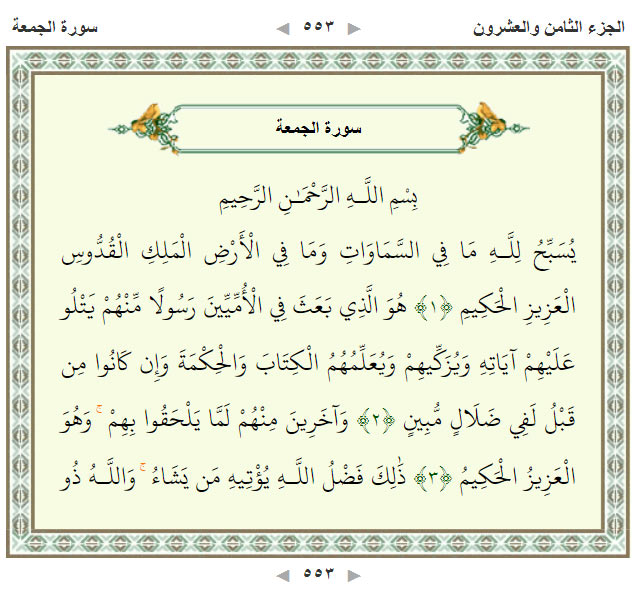 الجزء الثامن والعشرون ◀ ٥٥٣ ▶ سورة الجمعة
سورة الجمعة
بِسْمِ اللَّـهِ الرَّحْمَـٰنِ الرَّحِيمِ
يُسَبِّحُ لِلَّـهِ مَا فِي السَّمَاوَاتِ وَمَا فِي الْأَرْضِ الْمَلِكِ الْقُدُّوسِ
الْعَزِيزِ الْحَكِيمِ ﴿١﴾ هُوَ الَّذِي بَعَثَ فِي الْأُمِّيِّينَ رَسُولًا مِّنْهُمْ يَتْلُو
عَلَيْهِمْ آيَاتِهِ وَيُزَكِّيهِمْ وَيُعَلِّمُهُمُ الْكِتَابَ وَالْحِكْمَةَ وَإِن كَانُوا مِن
قَبْلُ لَفِي ضَلَالٍ مُّبِينٍ ﴿٢﴾ وَآخَرِينَ مِنْهُمْ لَمَّا يَلْحَقُوا بِهِمْ ۚ وَهُوَ
الْعَزِيزُ الْحَكِيمُ ﴿٣﴾ ذَٰلِكَ فَضْلُ اللَّـهِ يُؤْتِيهِ مَن يَشَاءُ ۚ وَاللَّـهُ ذُو
◀ ٥٥٣ ▶